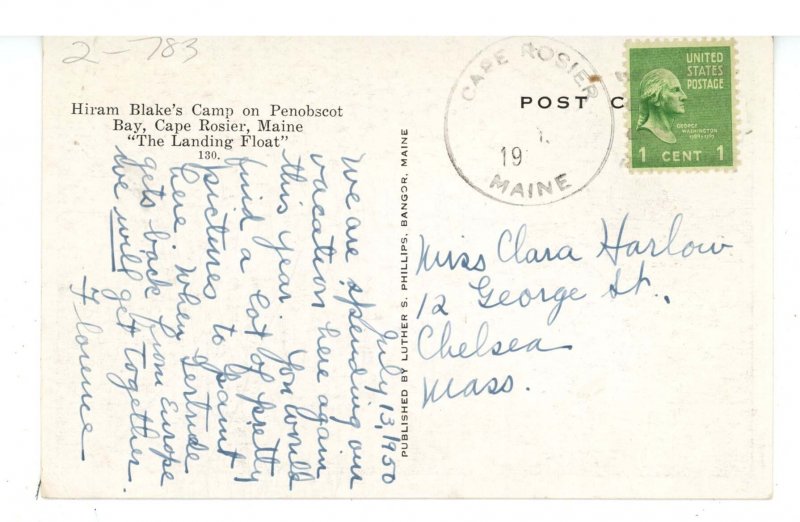 2-783
Hiram Blake's Camp on Penobscot
Bay, Cape Rosier, Maine
"The Landing Float"
130.
July 13, 1950
We are spending our
vacation here again
this year. You would
find a lot of pretty
pictures to paint
here. When Gertrude
gets back from Europe
we will get together.
Florence
PUBLISHED BY LUTHER S. PHILLIPS, BANGOR, MAINE
CAPE ROSIER
19
MAINE
POST C
UNITED
STATES
POSTAGE
GEORGE
WASHINGTON
1789-1797
1 CENT 1
Miss Clara Harlow
12 George St.,
Chelsea
Mass.